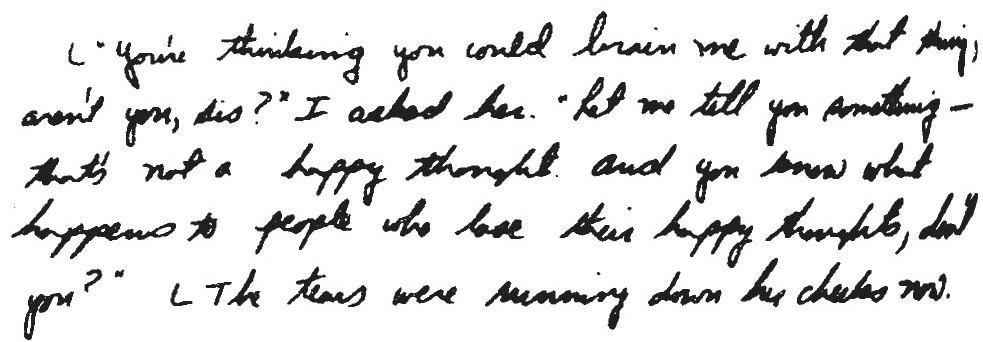 L "You're thinking you could brain me with that thing,
aren't you, sis?" I asked her. "Let me tell you something—
that's not a happy thought. and you know what
happens to people who lose their happy thoughts, don't
you?" L The tears were running down her cheeks now.